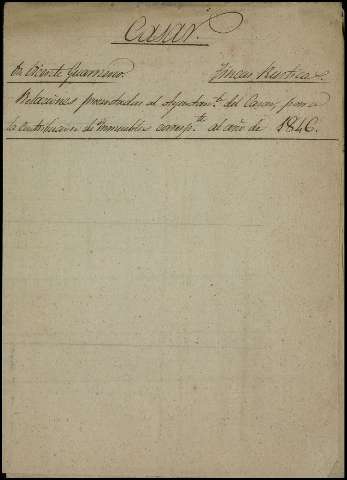 Casar.
Dn. Vicente Guerrero. Fincas Rusticas.
Relaciones presentadas al Ayuntamto. del Casar, para
la contribucion de Ynmuebles correspte. al año de 1846.